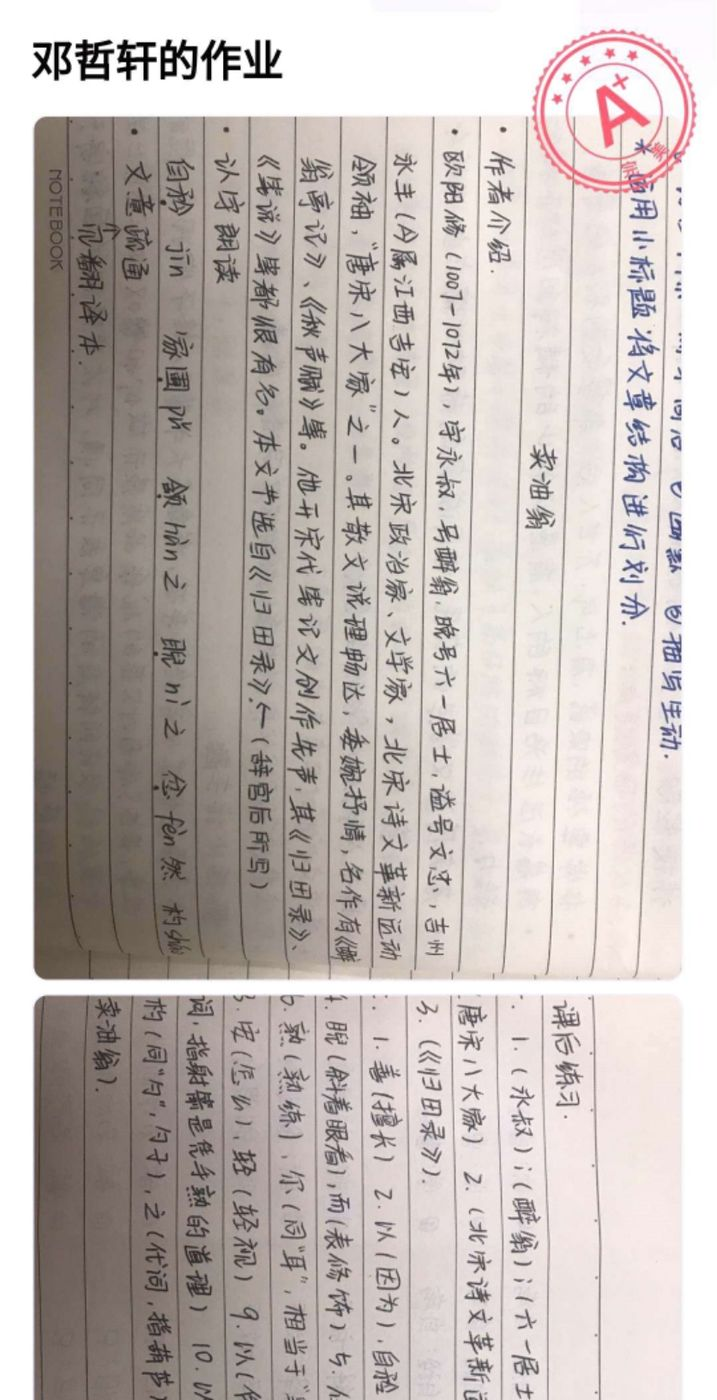 邓哲轩的作业
A+
*运用小标题将文章结构进行划分.
卖油翁
• 作者介绍.
• 欧阳修(1007-1072年),字永叔,号醉翁,晚号六一居士,谥号文忠,吉州
永丰(今属江西吉安)人。北宋政治家、文学家,北宋诗文革新运动
领袖,“唐宋八大家”之一。其散文说理畅达,委婉抒情,名作有《醉
翁亭记》、《秋声赋》等。他开宋代笔记文创作先声,其《归田录》、
《笔说》等都很有名。本文节选自《归田录》.←(辞官后所写)
• 认字朗读
自矜 jīn 家圃 颔hàn之 睨nì之 忿fèn然 杓sháo
• 文意疏通
见翻译本.
NOTEBOOK
课后练习.
1.(永叔);(醉翁);(六一居士
唐宋八大家) 2.(北宋诗文革新运
3.(《归田录》).
1.善(擅长) 2.以(因为),自矜
4.睨(斜着眼看),而(表修饰)与
6.熟(熟练),尔(同“耳”,相当于“
8.安(怎么),轻(轻视) 9.以(
词,指射箭是凭手熟的道理) 10.以
杓(同“勺”,勺子),之(代词,指葫芦)
卖油翁).